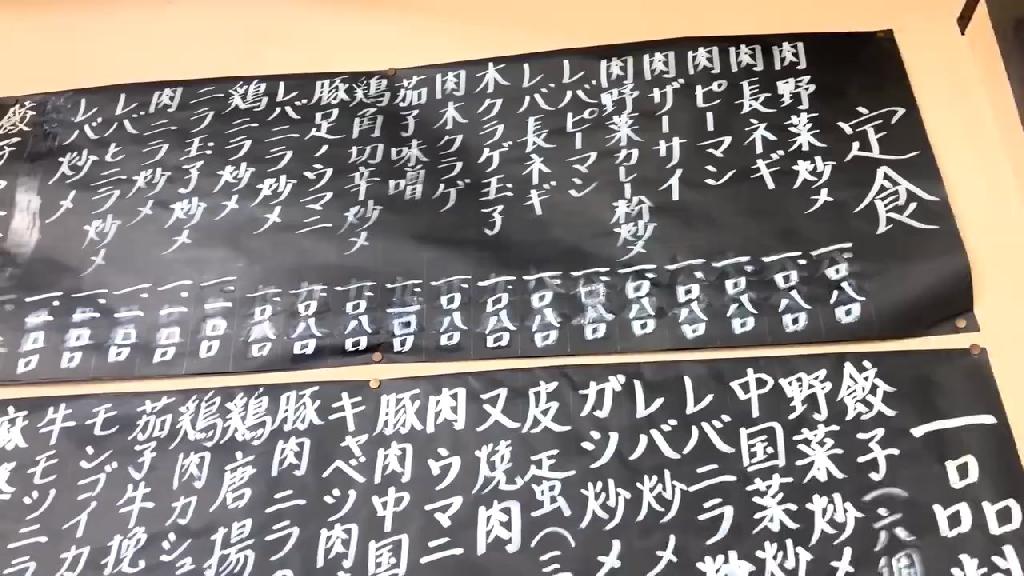 定食
肉野菜炒メ 一、〇八〇
肉長ネギ 一、〇八〇
肉ピーマン 一、〇八〇
肉ザーサイ 一、〇八〇
肉野菜カレー粉炒メ 一、〇八〇
レバピーマン 一、〇八〇
レバ長ネギ 一、〇八〇
木クラゲ玉子 一、〇八〇
肉木クラゲ 一、〇八〇
茄子味噌 一、一〇〇
鶏角切辛炒メ 一、〇八〇
豚足ノウマニ 一、〇八〇
レバニラ炒メ 一、〇八〇
鶏ニラ炒メ 一、一〇〇
ニラ玉子炒メ 一、一〇〇
肉ニラ炒メ 一、一〇〇
レバとニラ炒メ 一、一〇〇
レバ炒メ 一、一〇〇
餃子
一口品料
餃子(六個
野菜炒メ
中国菜炒
レバニラ炒
レバ炒メ
ガツ炒メ
皮蛋(三
叉焼肉
肉ウマニ
豚肉中国
キャベツ肉
豚肉ニラ
鶏唐揚
鶏肉カシュ
茄子牛挽
モンゴイカ
牛モツニラ
麻婆